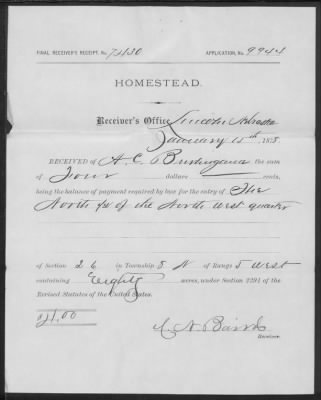 FINAL RECEIVER'S RECEIPT, No. 7430 APPLICATION, No. 9944
HOMESTEAD.
Receiver's Office, Lincoln Nebraska
January 11th, 187
RECEIVED of A. C. the sum
of Four dollars cents,
being the balance of payment required by law for the entry of The
North of the North West quarter
of Section 26 in Township 8 N of Range 5 West
containing Eighty acres, under Section 2291 of the
Revised Statutes of the United States.
$4.00
Receiver.